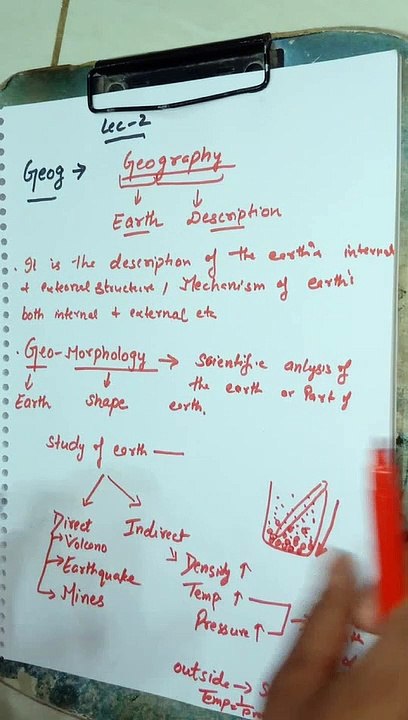 Lec-2
Geog → Geography
Earth Description
. It is the description of the earth's internal
+ external structure / Mechanism of earth's
both internal + external etc
. Geo-Morphology → Scientific anlysis of
the earth or Part of
Earth Shape earth.
Study of earth —
Direct Indirect
→ Volcano
→ Earthquake
→ Mines
Density ↑
Temp ↑
Pressure ↑
outside →
Temp =